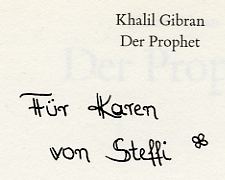 Khalil Gibran
Der Prophet
Für Karen
von Steffi